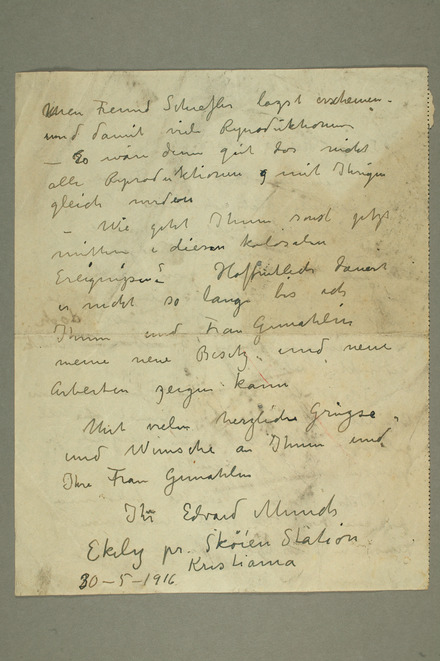 Ihren Freund Schiefler lagst erscheinen.
und damit viele Reproduktionen
– Es wäre denn gut das nicht
alle Reproduktionen mit Ihrigen
gleich wurden
– Wie geht Ihnen sonst jetzt
mitten i diesen kolosalen
Ereignissen? Hoffentlich dauert
es nicht so lange bis ich
Ihnen und Frau Gemahlin
meine neue Besitz und neue
Arbeiten zeigen kann
Mit vielen herzliche Grüsse
und Wünsche an Ihnen und
Ihre Frau Gemahlin
Ihr Edvard Munch
Ekely pr. Skøien Station
Kristiania
30-5-1916